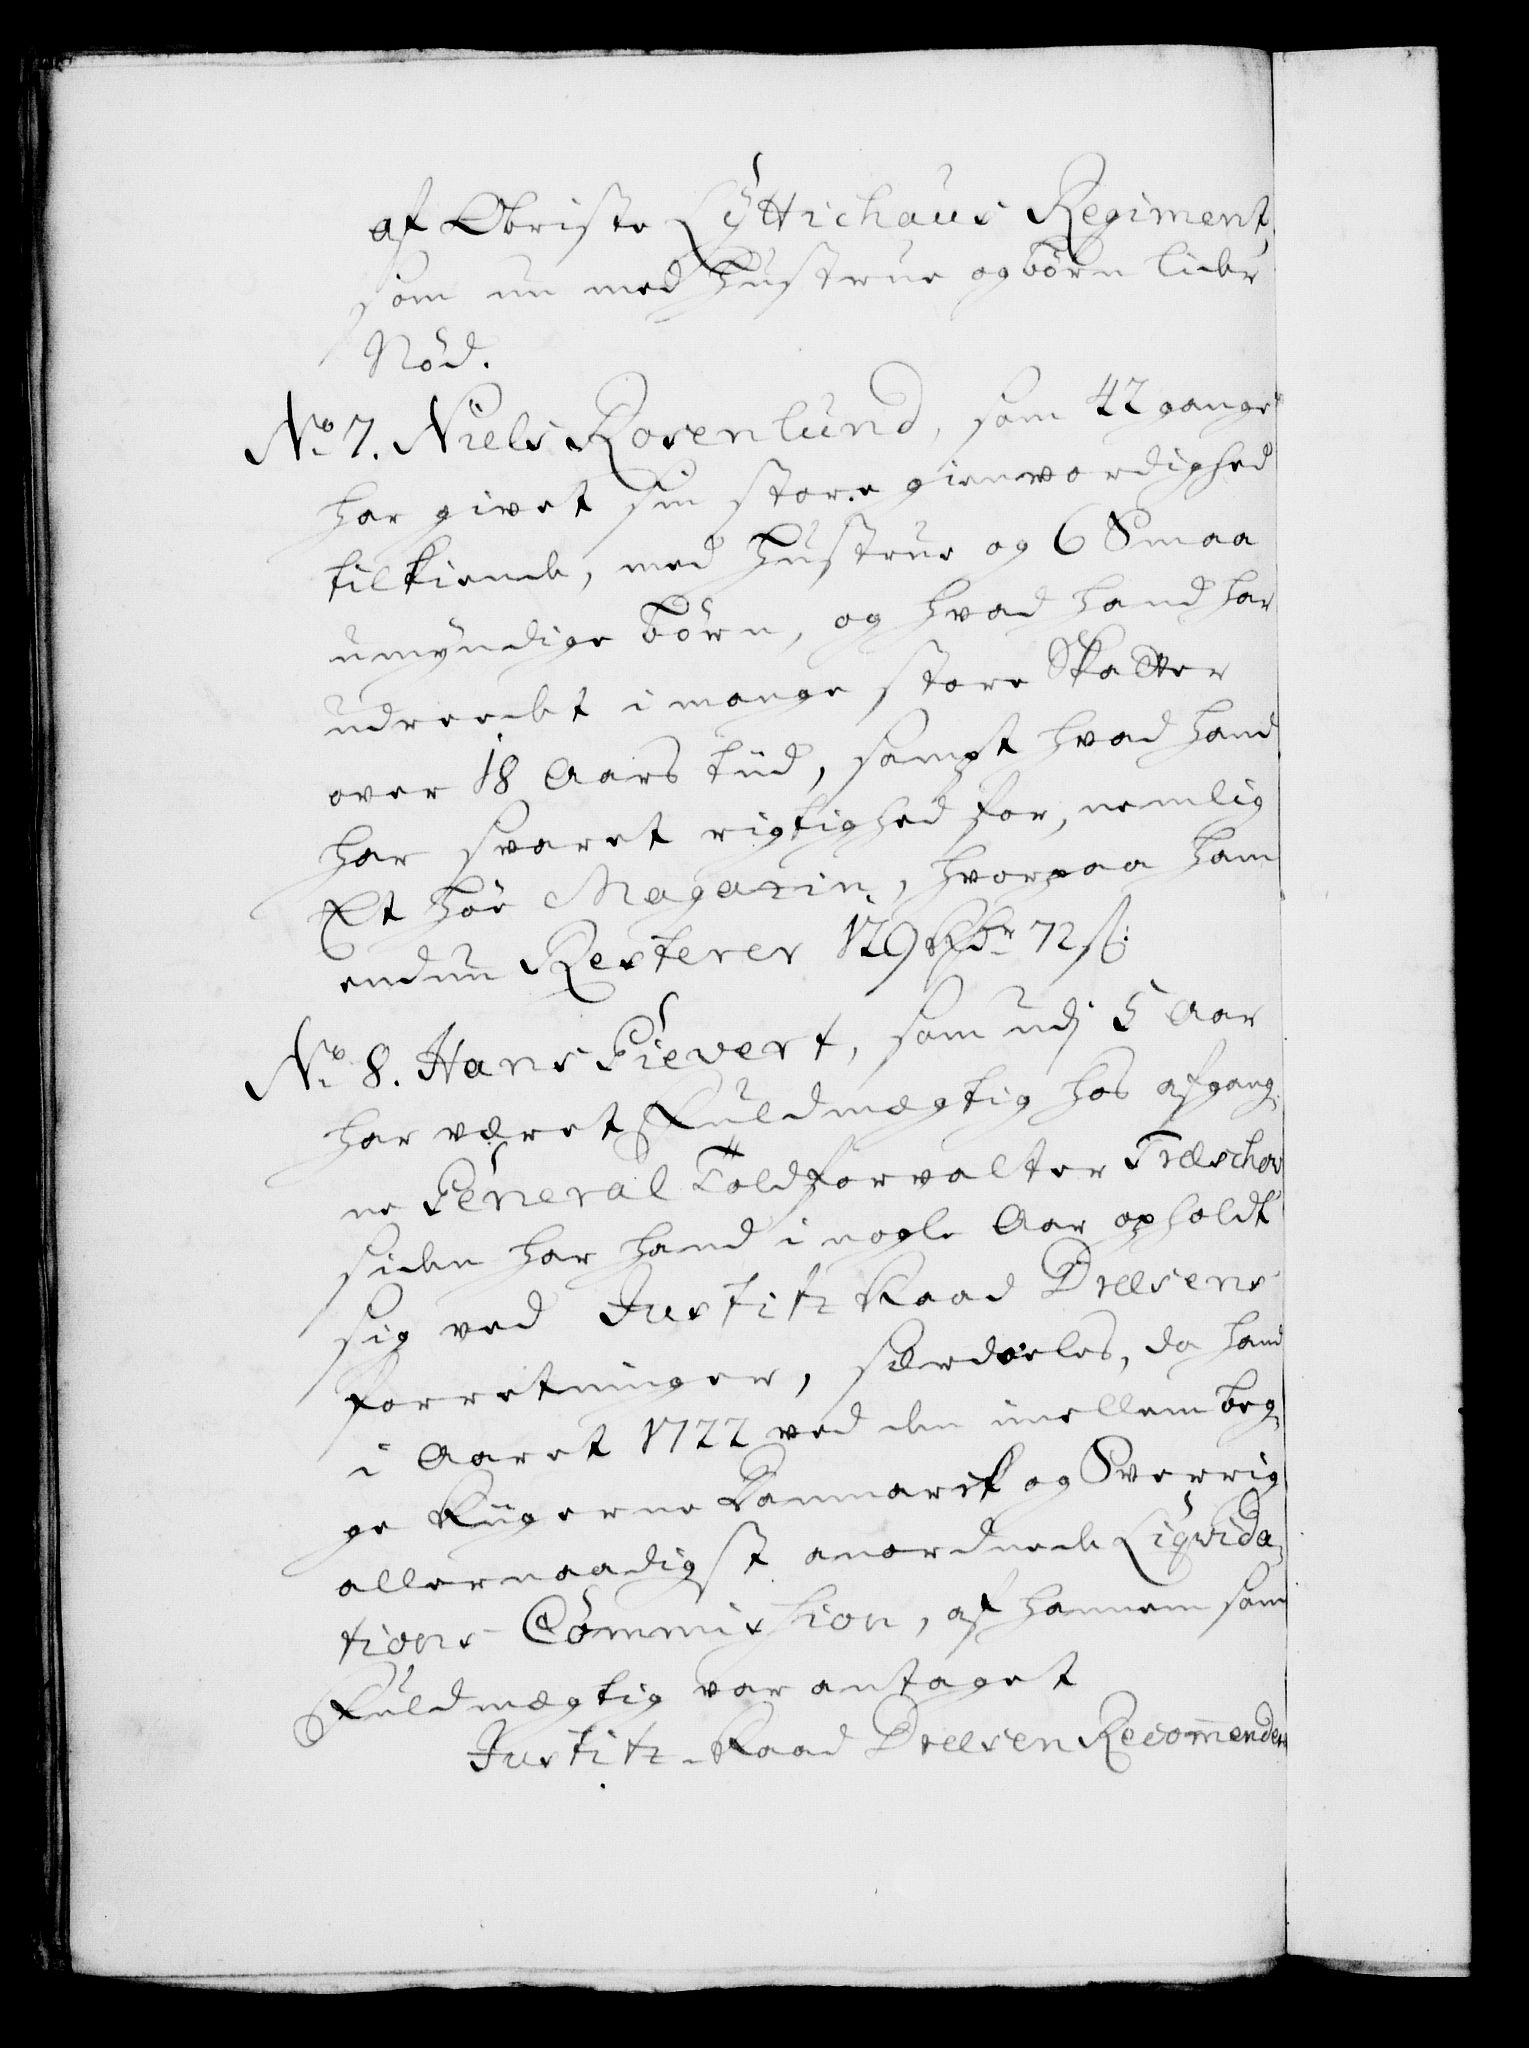 af Obriste Lÿttichaus Regiment,
som nu med Hustrue og børn lider
Nöd.
No 7. Niels Rosenlund, som 42 gange
har givet sin store gienvordighed
tilkiende, med Hustrue og 6 Smaa
umyndige börn, og hvad hand har
udreedet i mange store Skatter
over 18 Aars tiid, sampt hvad hand
har svaret rigtighed for, nemlig
Et höe Magazin, hvorpaa ham
endnu Resterer 129 Rdr 72 s:
No 8. Hans Sievert, som udj 5 Aar
har været Fuldmægtig hos afgang-
ne General Toldforvalter Træschov
siden har hand i nogle Aar opholdt
sig ved Justitz Raad Dreesens
forretninger, særdeeles, da hand
i Aaret 1722 ved den imellem beg-
ge Riigerne Danmarck og Sverrig
allernaadigst anordnede Liqvida-
tions Commission, af hannem som
Fuldmægtig var antaget
Justitz-Raad Dreesen Recommender